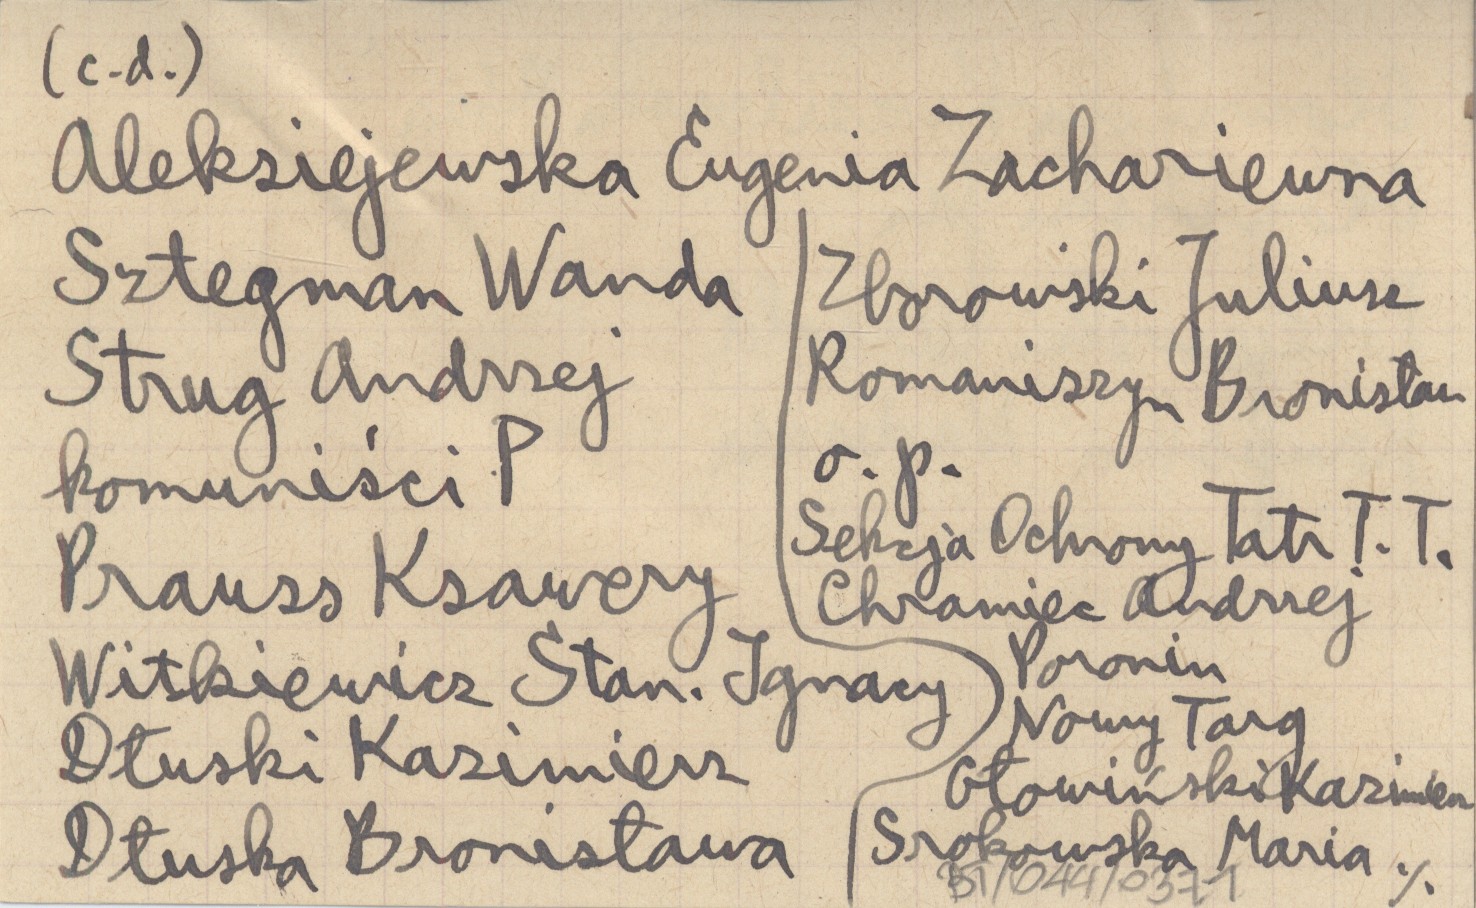 (c.d.)
Aleksiejewska Eugenia Zachariewna
Sztegman Wanda
Strug Andrzej
komuniści P
Prauss Ksawery
Witkiewicz Stan. Ignacy
Dłuski Kazimierz
Dłuska Bronisława
Zborowski Juliusz
Romaniszyn Bronisław
o. p.
Sekcja Ochrony Tatr T. T.
Chramiec Andrzej
Poronin
Nowy Targ
Głowiński Kazimierz
Srokowska Maria ./.
BT/044/0371